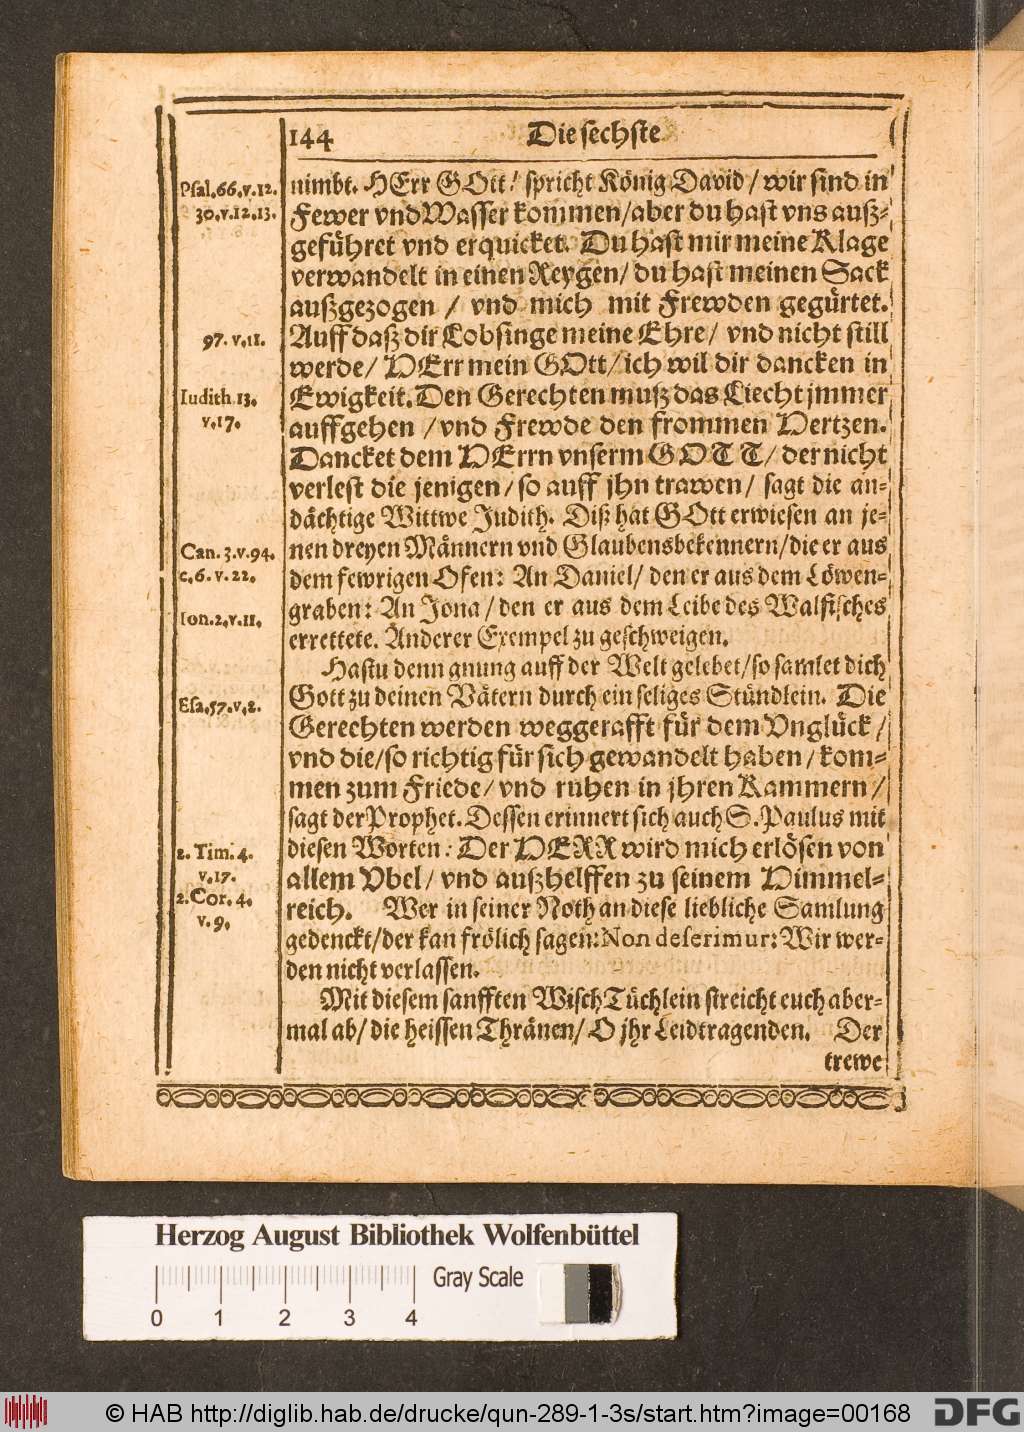 144 Die sechste
Psal.66.v.12.
30.v.12.13.
97.v.11.
Iudith 13.
v.17.
Can.3.v.94.
c.6.v.22.
Ion.2.v.11.
Esa.57.v.2.
2. Tim. 4.
v.17.
2.Cor. 4.
v.9.
nimbt. HErr GOtt! spricht König David / wir sind in
Fewer vnd Wasser kommen/aber du hast vns auß-
geführet vnd erquicket. Du hast mir meine Klage
verwandelt in einen Reygen/ du hast meinen Sack
außgezogen / vnd mich mit Frewden gegürtet.
Auff daß dir Lobsinge meine Ehre/ vnd nicht still
werde/ HErr mein GOtt/ich wil dir dancken in
Ewigkeit. Den Gerechten muß das Liecht jmmer
auffgehen /vnd Frewde den frommen Hertzen.
Dancket dem HErrn vnserm GOTT/ der nicht
verlest die jenigen/ so auff jhn trawen/ sagt die an-
dächtige Wittwe Judith. Diß hat GOtt erwiesen an je-
nen dreyen Männern vnd Glaubensbekennern/die er aus
dem fewrigen Ofen: An Daniel/ den er aus dem Löwen-
graben: An Jona/den er aus dem Leibe des Walfisches
errettete. Anderer Exempel zu geschweigen.
Hastu denn gnung auff der Welt gelebet/so samlet dich
Gott zu deinen Vätern durch ein seliges Stündlein. Die
Gerechten werden weggerafft für dem Vnglück/
vnd die/so richtig für sich gewandelt haben/ kom-
men zum Friede/ vnd ruhen in jhren Kammern/
sagt der Prophet. Dessen erinnert sich auch S. Paulus mit
diesen Worten: Der HERR wird mich erlösen von
allem Vbel/ vnd außhelffen zu seinem Himmel-
reich. Wer in seiner Noth an diese liebliche Samlung
gedenckt/der kan frölich sagen: Non deserimur: Wir wer-
den nicht verlassen.
Mit diesem sanfften WischTüchlein streicht euch aber-
mal ab/ die heissen Thränen/ O jhr Leidtragenden. Der
trewe
Herzog August Bibliothek Wolfenbüttel
Gray Scale
0 1 2 3 4
© HAB http://diglib.hab.de/drucke/qun-289-1-3s/start.htm?image=00168 DFG